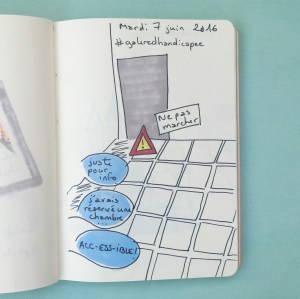 Mardi 7 juin 2016
#galeredhandicapee
Ne pas
marcher
juste
pour
info
j'avais
réservé une
chambre...
ACC-ESS-IBLE!